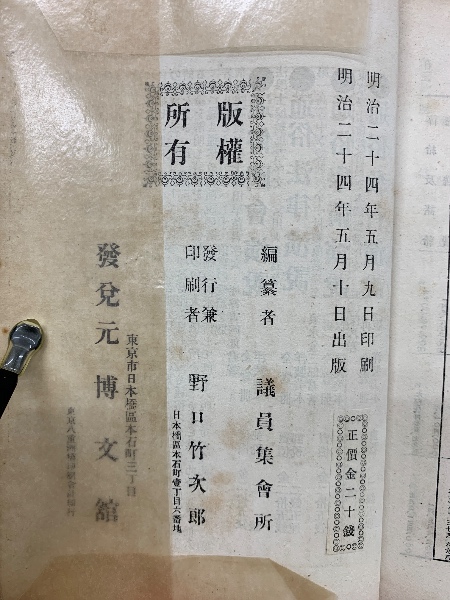 明治二十四年五月九日印刷
明治二十四年五月十日出版
正價金二十錢
版權
所有
編纂者 議員集會所
發行兼
印刷者 野口竹次郎
日本橋區本石町壹丁目六番地
東京市日本橋區本石町三丁目
發兌元 博文館